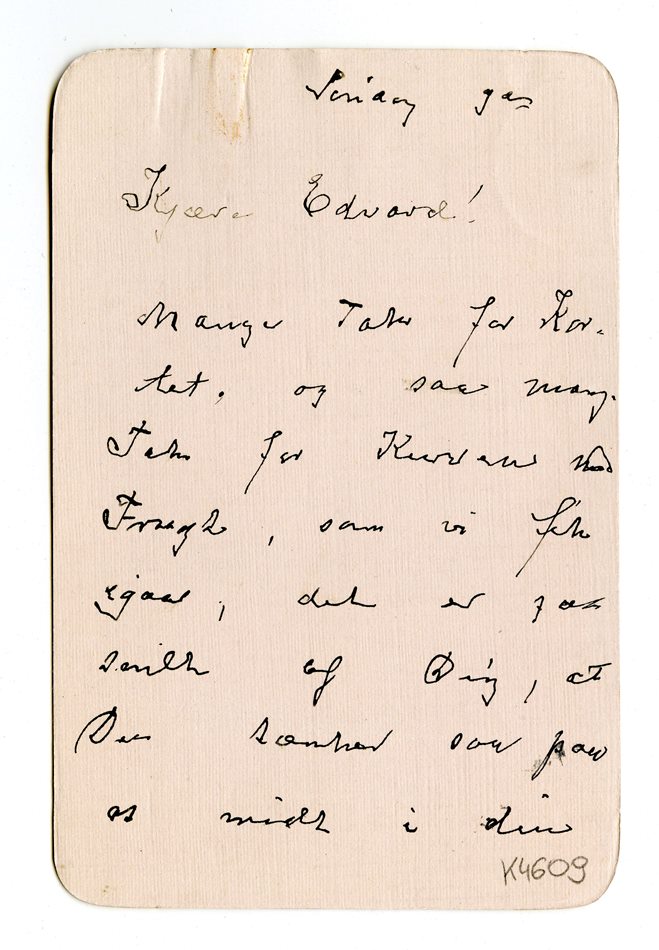 Søndag
Kjære Edvard!
Mange Takk for Kor-
tet, og saa mang.
Takk for Kurven med
Frugt, som vi fik
igaar, det er
snilt af Dig, at
Du tænker saa paa
os midt i din
K4609